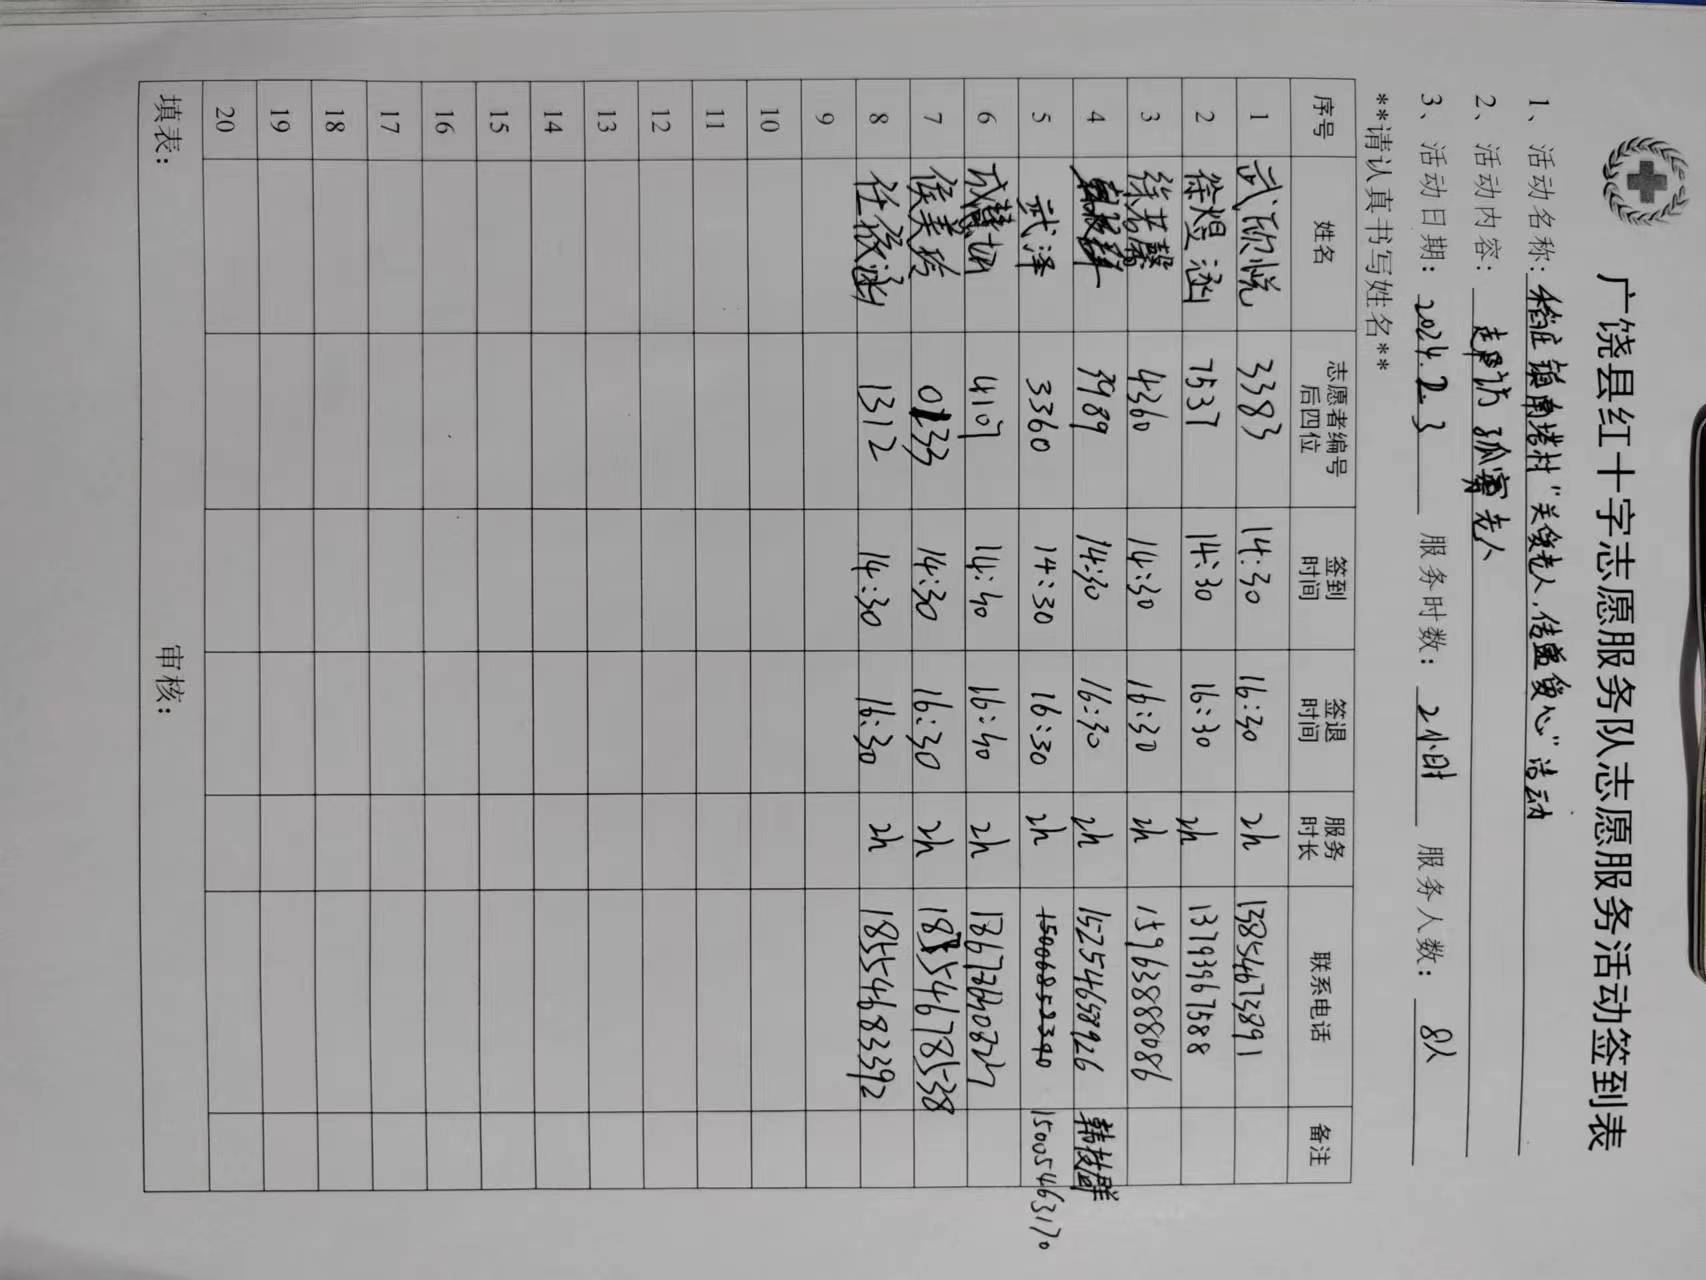 广饶县红十字志愿服务队志愿服务活动签到表
1、活动名称：稻庄镇南塔村“关爱老人，传递爱心”活动
2、活动内容：走访孤寡老人
3、活动日期：2024.2.3 服务时数：2小时 服务人数：8人
**请认真书写姓名**
序号 姓名 志愿者编号后四位 签到时间 签退时间 服务时长 联系电话 备注
1 武欣悦 3383 14:30 16:30 2h 13854673891
2 徐煜涵 7537 14:30 16:30 2h 13793967588
3 徐若馨 4360 14:30 16:30 2h 15963888086
4 9989 14:30 16:30 2h 15254658926 韩技群
5 武泽 3360 14:30 16:30 2h 15006852390 15005463170
6 14:30 16:30 2h
7 侯美玲 0133 14:30 16:30 2h 18554678538
8 任筱涵 1312 14:30 16:30 2h 18554683392
9
10
11
12
13
14
15
16
17
18
19
20
填表： 审核：